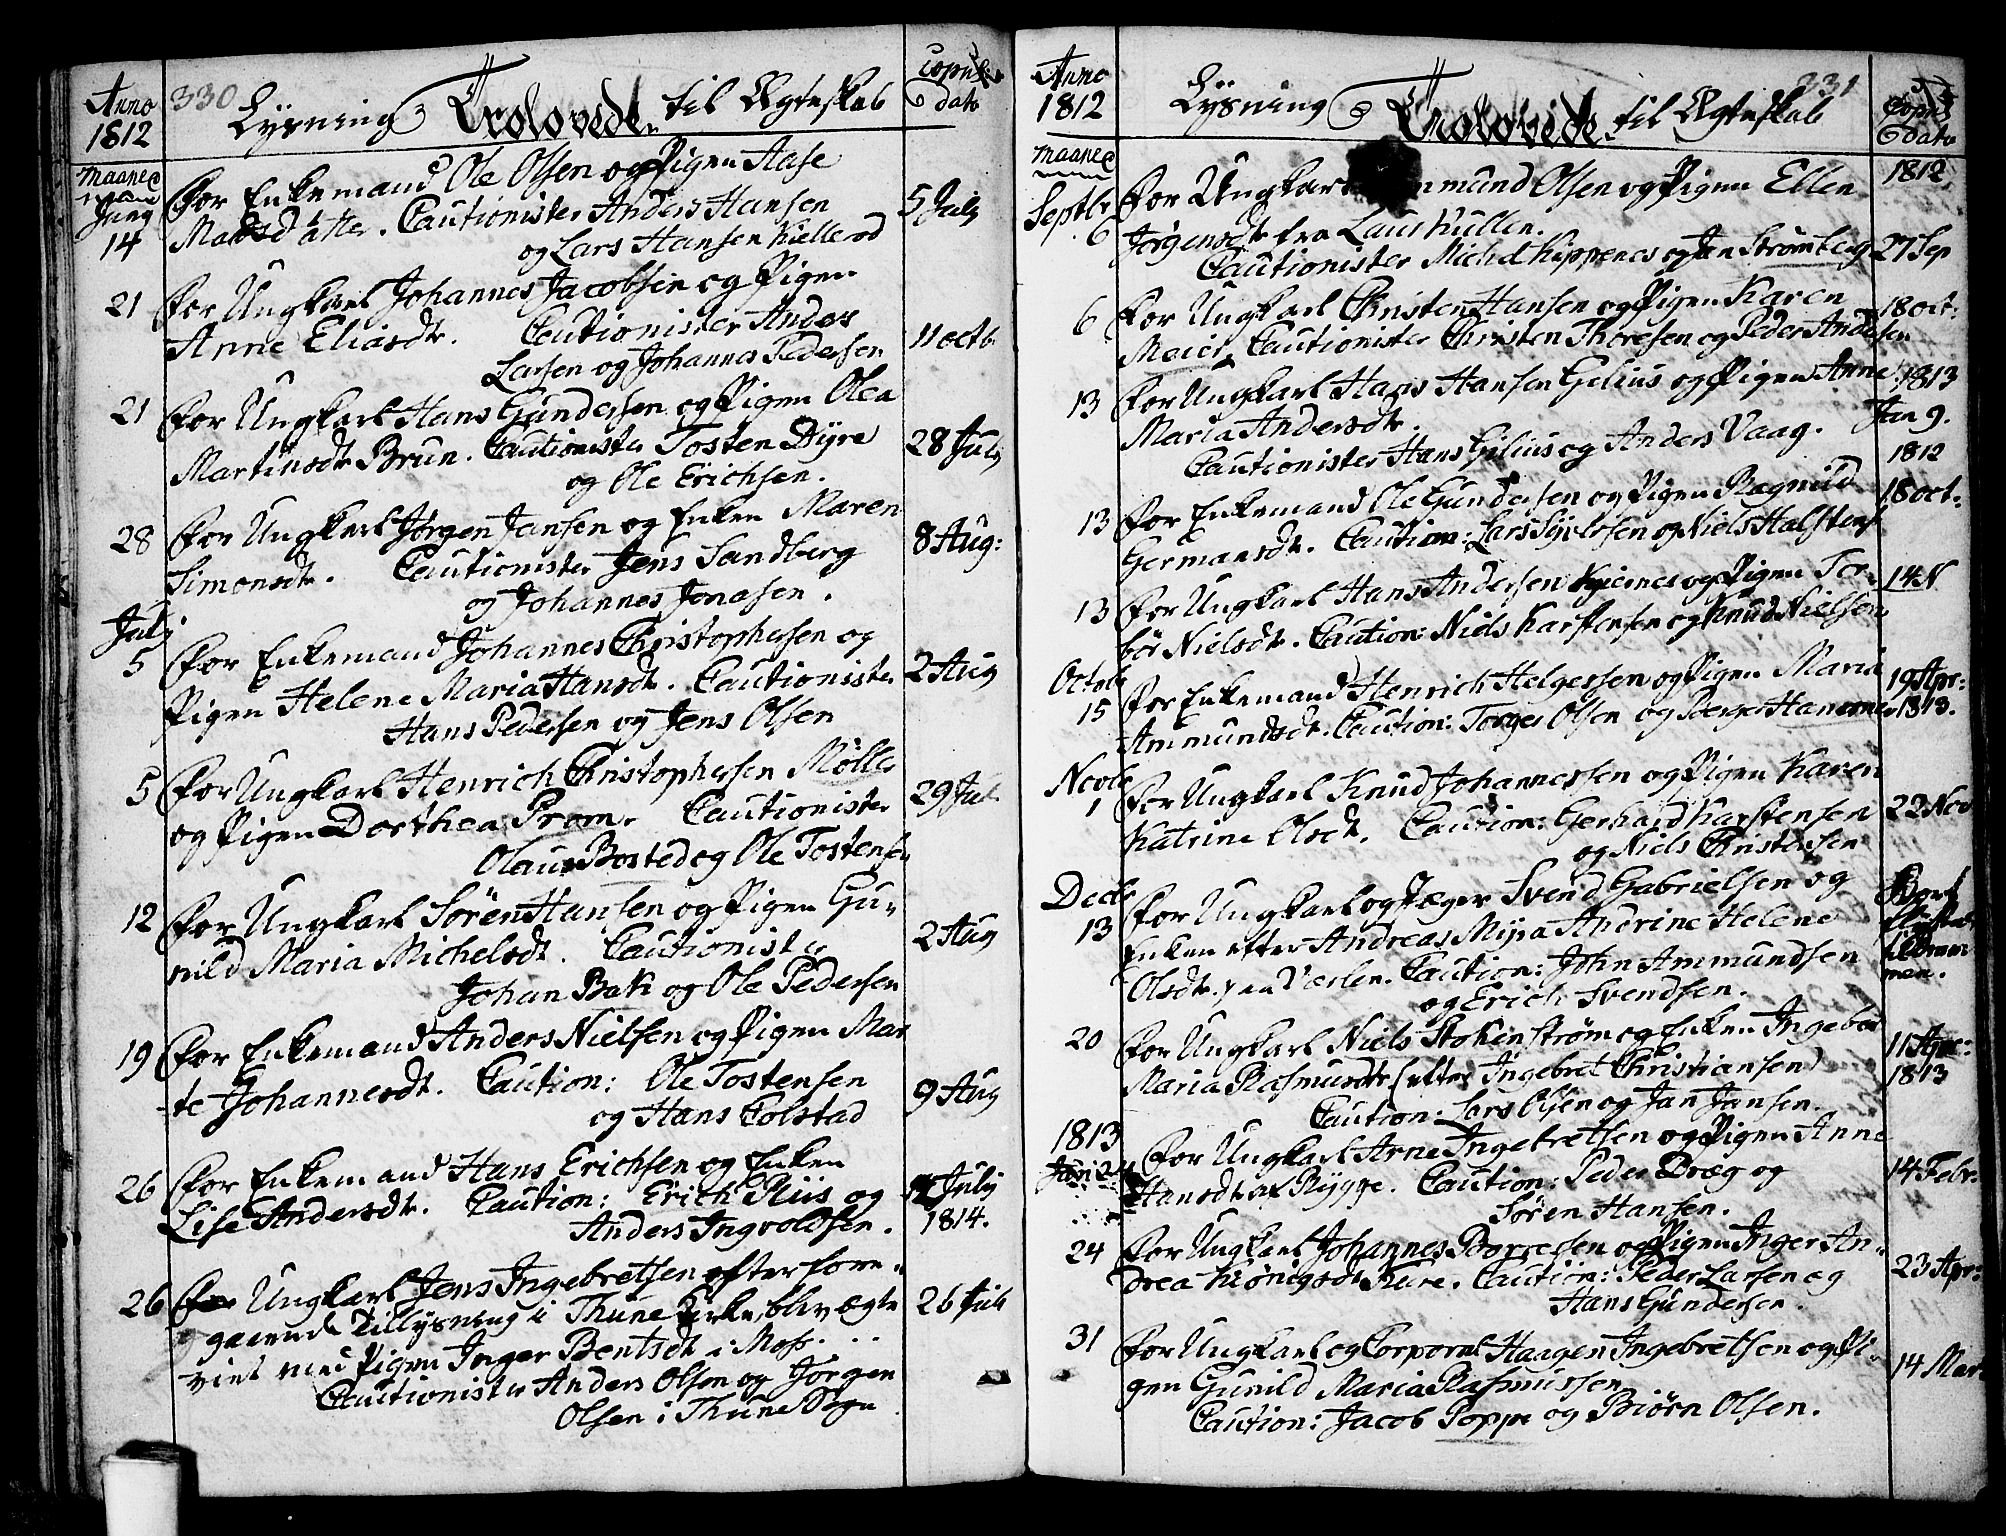 Anno 1812
330
Lysning Trolovede til Ægteskab
Copul: dato
Maaned
Juny
14 For Enkemand Ole Olsen og Pigen Aase
Madsdatter. Cautionister Anders Hansen 5 July
og Lars Hansen Kiellerød
21 For Ungkarl Johannes Jacobsen og Pigen
Anne Eliasdtr. Cautionister Anders 11 octb
Larsen og Johannes Pedersen
21 For Ungkarl Hans Gundersen og Pigen Olea
Martinsdtr Brun. Cautionister Tosten Dyre 28 July
og Ole Erichsen.
28 For Ungkarl Jørgen Jansen og Enken Maren 8 Aug:
Simonsdtr. Cautionister Jens Sandberg
og Johannes Jonasen.
July
5 For Enkemand Johannes Christophersen og
Pigen Helene Maria Hansdtr. Cautionister 2 Aug
Hans Pedersen og Jens Olsen
5 For Ungkarl Henrich Christophersen Møller
og Pigen Dorthea Prom. Cautionister 29 Jul
Olaus Bosted og Ole Tostensen
12 For Ungkarl Søren Hansen og Pigen Gu-
nild Maria Michelsdtr. Cautionister 2 Aug
Johan Bak og Ole Pedersen
19 For Enkemand Anders Nielsen og Pigen Mar
-te Johannesdtr. Caution: Ole Tostensen 9 Aug
og Hans Colstad
26 For Enkemand Hans Erichsen og Enken
Lise Andersdtr. Caution: Erich Riis og July
Anders Ingvoldsen. 1814.
26 For Ungkarl Jens Ingebretsen efter fore-
gaaende Tillysning i Thune Kirke, blev ægte 26 Jul
viet med Pigen Inger Bentsdtr i Moss.
Cautionister Anders Olsen og Jørgen
Olsen i Thune Sogn
Anno 1812
331
Lysning Trolovede til Ægteskab
Copul dato
Maaned
Septbr 1812
6 For Ungkarl mund Olsen og Pigen Ellen
Jørgensdtr fra Laurkullen.
Cautionister Michel Kippenes og Jan Strømberg 27 Sep
6 For Ungkarl Christen Hansen og Pigen Karen 18 oct:
Meier, Cautionister Christen Thoresen og Peder Andersen
13 For Ungkarl Hans Hansen Gelius og Pigen Anne 1813
Maria Andersdtr. Jan 9.
Cautionister Hans Gilius og Anders Vaag. 1812
13 For Enkemand Ole Gundersen og Pigen Ragnild 18 oct.
Germansdtr. Caution: Lars Syversen og Niels Halstens
13 For Ungkarl Hans Andersen Kjernes og Pigen Tor- 14 N
bør Nielsdtr. Caution: Niels Karstensen og Knud Nielsen
Octobr
15 For Enkemand Henrich Helgersen og Pigen Maria 19 Apr:
Ammundsdtr. Caution: Torger Olsen og 1813.
Novbr
1 For Ungkarl Knud Johannessen og Pigen Karen
Katrine Olsdtr. Caution: Gerhard Karstensen 22 Nov
og Niels Christensen
Decbr
13 For Ungkarl og Jæger Svend Gabrielsen og Bort
Enken efter Andreas Mysa Andrine Helene
Olsdtr. paa Værlen. Caution: John Ammundsen
og Erich Svendsen.
20 For Ungkarl Niels Stokenstrøm og Enken Ingebør 11 Apr:
Maria Rasmusdtr (efter Ingebret Christiansen) 1813
Caution: Lars Olsen og Jan Jansen.
1813
Jan: 24 For Ungkarl Arne Ingebretsen og Pigen Anne
Hansdtr af Rygge. Caution: Peder Dræg og 14 Febr.
Søren Hansen.
24 For Ungkarl Johannes Borresen og Pigen Inger An-
drea Kønigsdtr Kure. Caution: Peder Larsen og 23 Apr:
Hans Gundersen.
31 For Ungkarl og Corporal Haagen Ingebretsen og Pi-
gen Gunild Maria Rasmussen 14 Mart
Caution: Jacob Poppe og Biørn Olsen.